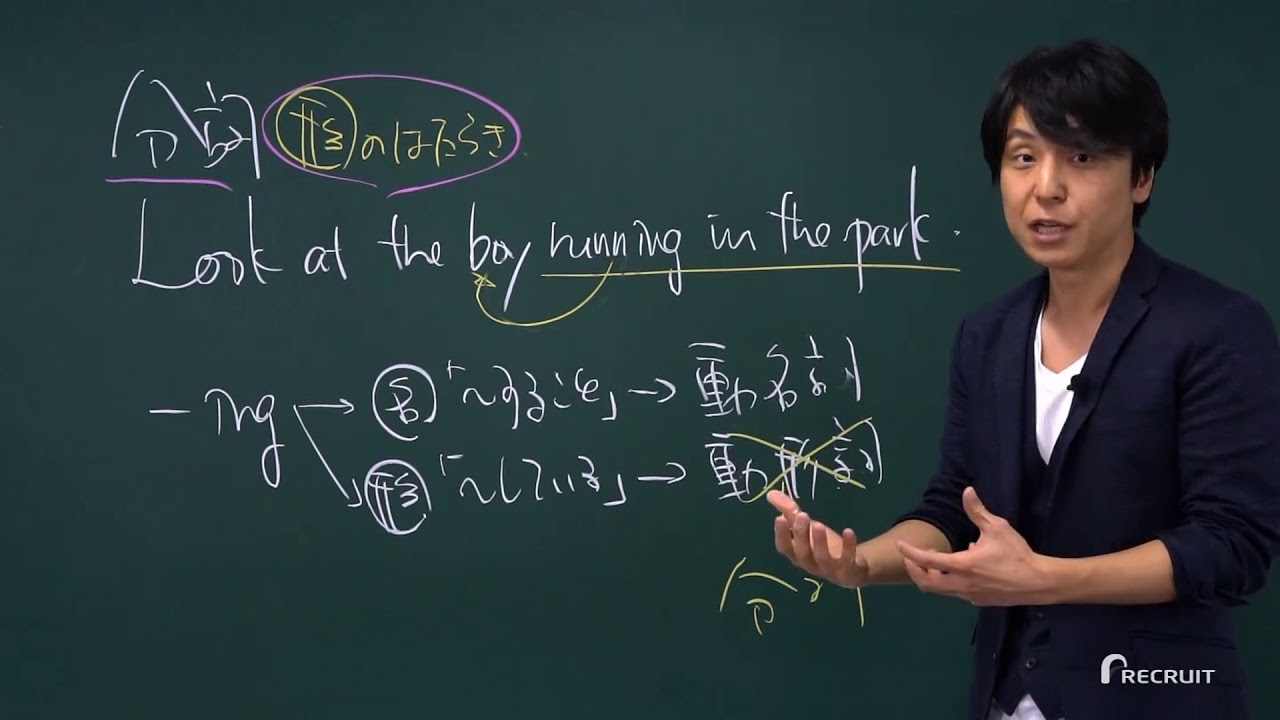 分詞 形のはたらき
Look at the boy running in the park.
-ing → 名「~すること」→ 動名詞
形「~している」→ 動形詞
RECRUIT